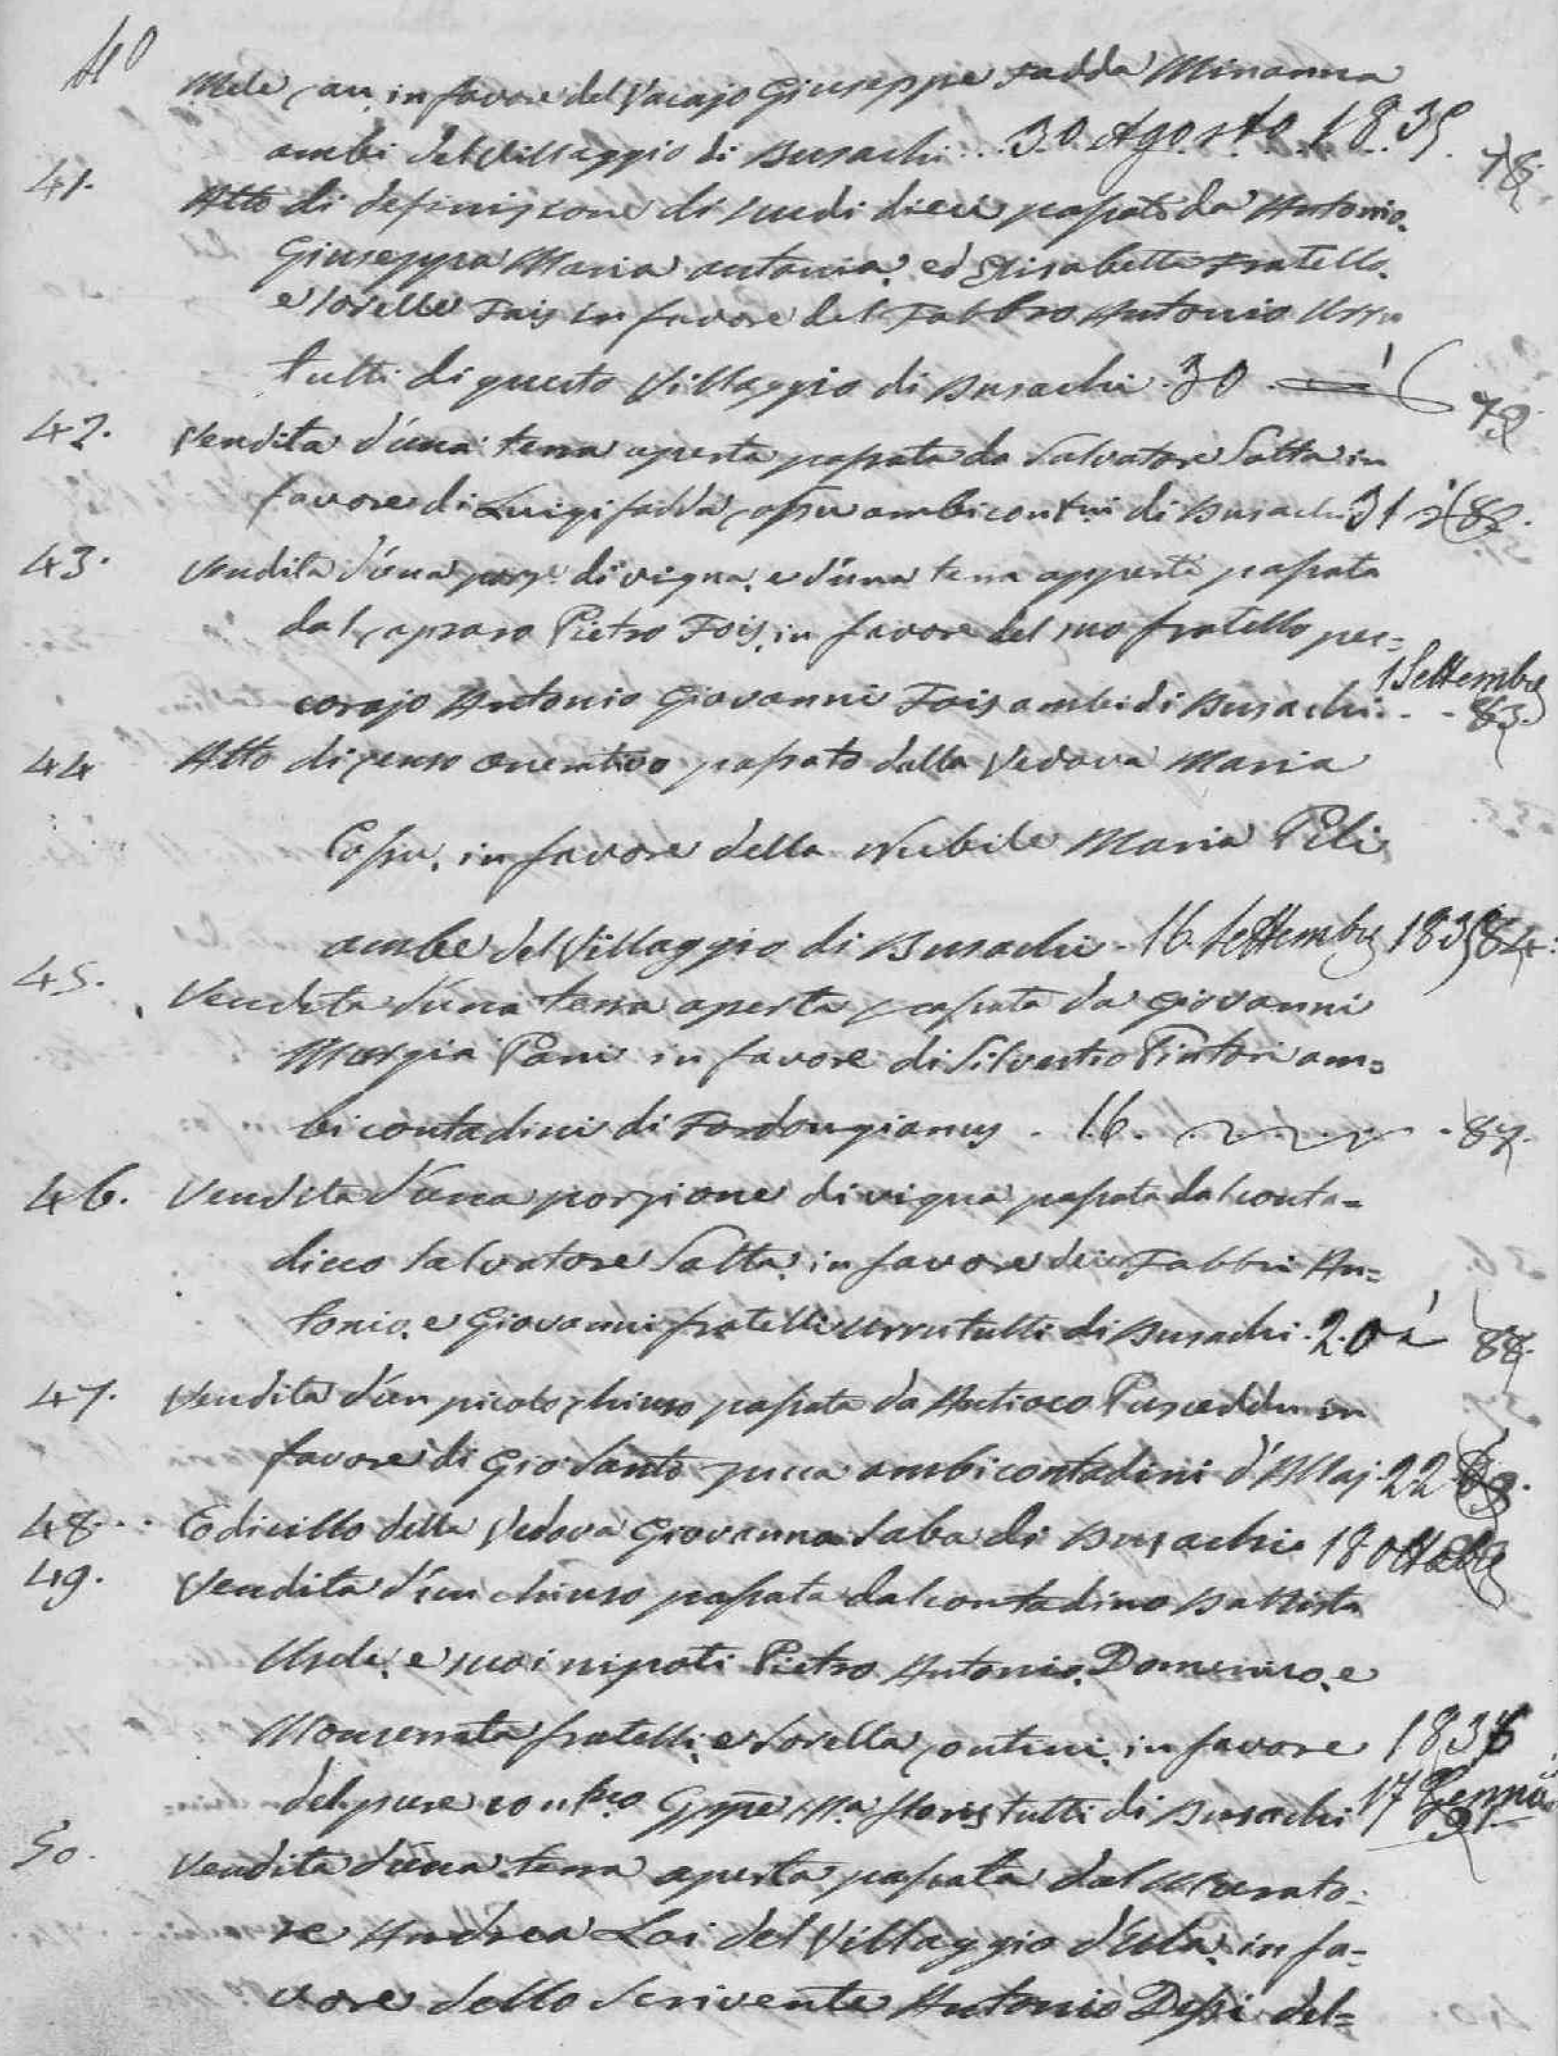 40
Mele, in favore del Vacajo Giuseppe Fadda Minanna
ambi del Villaggio di Busachi... 30. Agosto. 1835. 78.
41. Atto di definizione di scudi dieci passato da Antonio,
Giuseppa Maria Antonia, ed Elisabetta Fratello,
e Sorelle Fais in favore del Fabbro Antonio Urru
tutti di questo Villaggio di Busachi. 30. 79
42. Vendita d'una terra aperta passata da Salvatore Satta in
favore di Luigi Fadda, ambi cont.ni di Busachi 31 82.
43. Vendita d'una porz.e di vigna, e d'una terra apperta passata
dal capraro Pietro Fois, in favore del suo fratello pec=
corajo Antonio Giovanni Fois ambi di Busachi. 1 Settembre 83.
44 Atto di censo passato dalla Vedova Maria
Cossu, in favore della Nubile Maria Peli
ambe del Villaggio di Busachi - 16. Settembre 1835 84.
45. Vendita d'una terra aperta passata da Giovanni
Murgia Pani in favore di Silvestro Pintori am=
bi contadini di Fordongianus. 16. 87.
46. Vendita d'una porzione di vigna passata dal conta=
dino Salvatore Satta, in favore dei Fabbri An=
tonio, e Giovanni fratelli Urru tutti di Busachi. 20 88.
47. Vendita d'un picolo chiuso passata da Antioco Pusceddu in
favore di Gio Santo Zucca ambi contadini d'Allaj. 22 89.
48... Codicillo della Vedova Giovanna Saba di Busachi 18 Ottobre
49. Vendita d'un chiuso passata dal contadino Battista
Usda, e suoi nipoti Pietro Antonio, Domenico, e
Monserrata fratelli, e sorella contini, in favore 1836
del pure cont.no Gppe M.a Floris tutti di Busachi 17 Gennajo 91
50. Vendita d'una terra aperta passata dal Murato=
re Andrea Loi del Villaggio d'Ula, in fa=
vore dello Scrivente Antonio Dessi del=